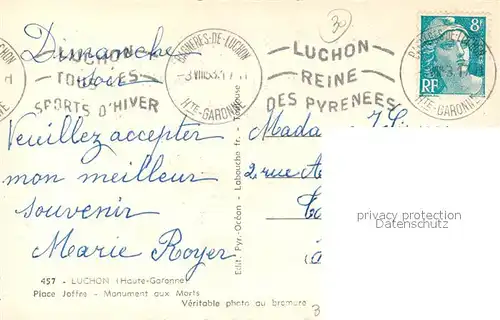 30
Dimanche
soir
BAGNERES-DE-LUCHON
HTE-GARONNE
LUCHON
TOUS LES
SPORTS D'HIVER
LUCHON
REINE
DES PYRENEES
BAGNERES-DE-LUCHON
HTE-GARONNE
8F
RF
Veuillez accepter
mon meilleur
souvenir
Marie Royer
Madame
2 rue
Edit. Pyr.-Océan - Labouche fr. - Toulouse
privacy protection
Datenschutz
457 - LUCHON (Haute-Garonne)
Place Joffre - Monument aux Morts
Véritable photo au bromure
3